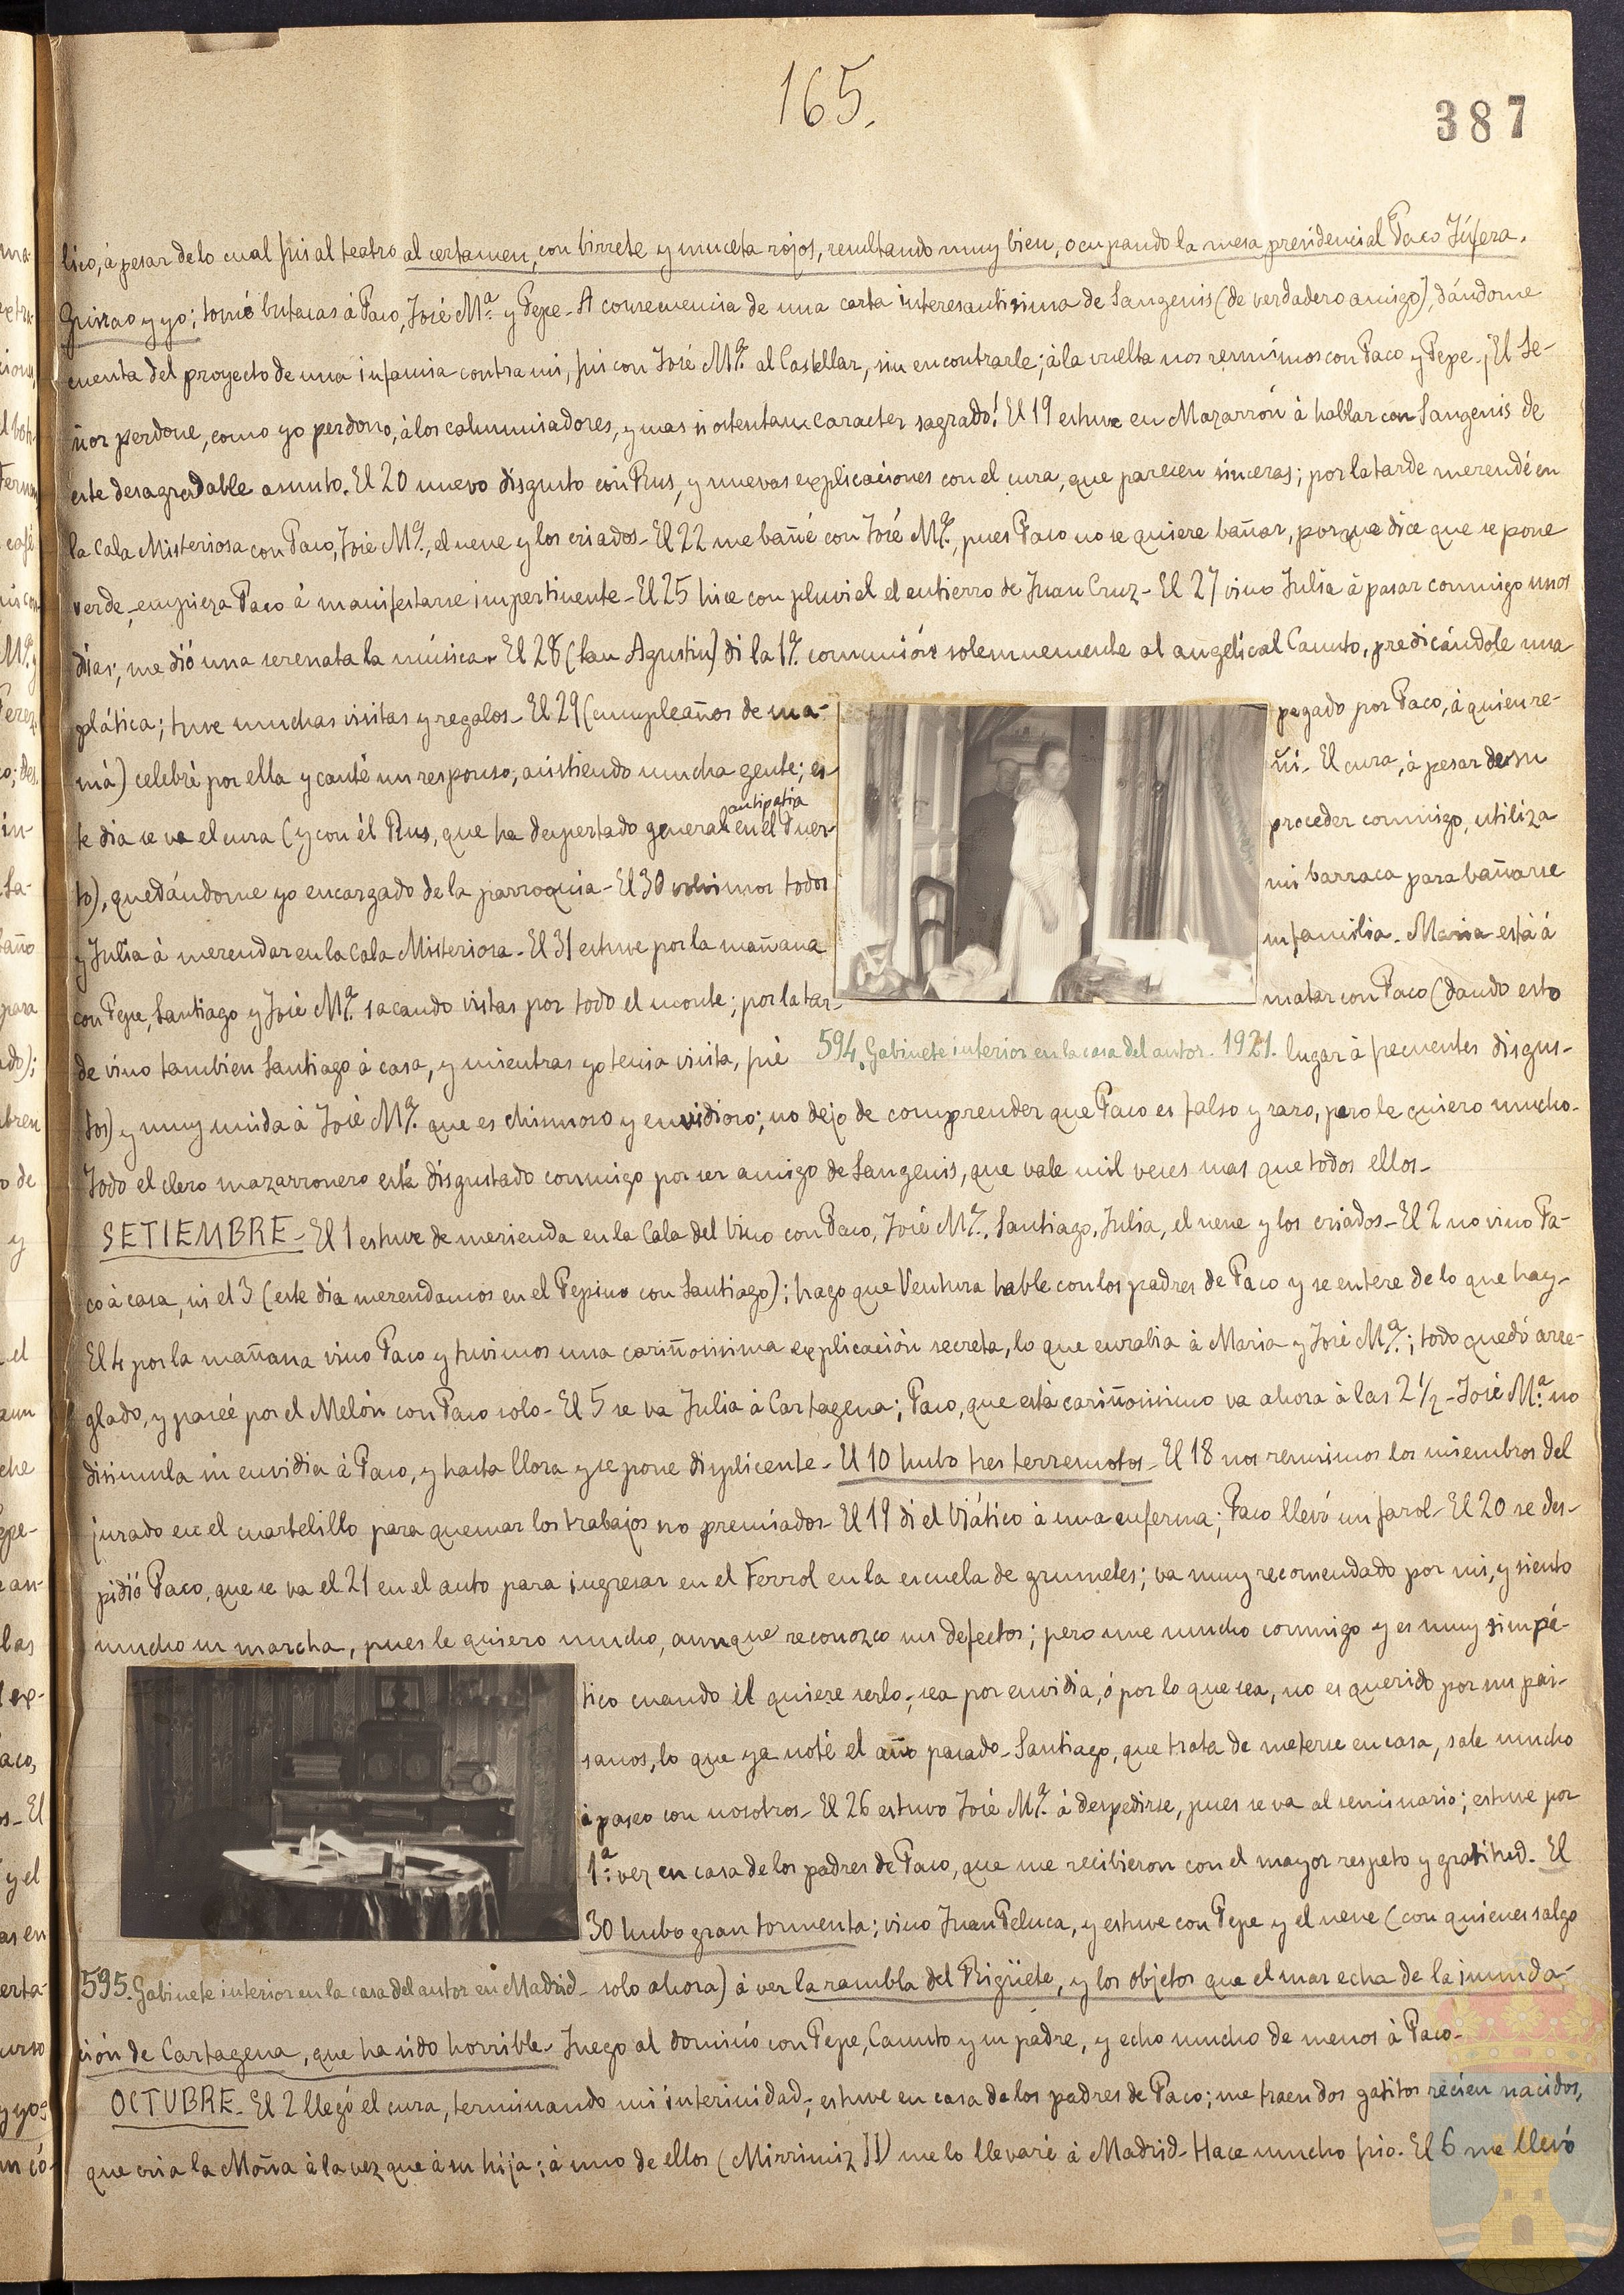 165.
387
lico, á pesar de lo cual fui al teatro al certamen, con birrete y muceta rojos, resultando muy bien, ocupando la mesa presidencial Paco Júfera,
Guirao y yo; tomé butacas á Paco, José Mª. y Pepe - A consecuencia de una carta interesantisima de Sangenis (de verdadero amigo), dándome
cuenta del proyecto de una infamia contra mi, fui con José Mª. al Castellar, sin encontrarle; á la vuelta nos reunimos con Paco y Pepe. ¡El Se-
ñor perdone, como yo perdono, á los calumniadores, y mas si ostentan caracter sagrado! El 19 estuve en Mazarrón á hablar con Sangenis de
este desagradable asunto. El 20 nuevo disgusto con Rus, y nuevas explicaciones con el cura, que parecen sinceras; por la tarde merendé en
la Cala Misteriosa con Paco, José Mª., el nene y los criados - El 22 me bañé con José Mª., pues Paco no se quiere bañar, porque dice que se pone
verde, empieza Paco á manifestarse impertinente - El 25 hice con pluvial el entierro de Juan Cruz - El 27 vino Julia á pasar conmigo unos
dias; me dió una serenata la música - El 28 (San Agustin) di la 1ª. comunión solemnemente al angelical Canuto, predicándole una
plática; tuve muchas visitas y regalos - El 29 (cumpleaños de ma-
má) celebré por ella y canté un responso, asistiendo mucha gente; es-
te dia se va el cura (y con él Rus, que ha despertado general antipatia en el Puer-
to), quedándome yo encargado de la parroquia - El 30 volvimos todos
y Julia á merendar en la Cala Misteriosa - El 31 estuve por la mañana
con Pepe, Santiago y José Mª. sacando vistas por todo el monte; por la tar-
de vino tambien Santiago á casa, y mientras yo tenia visita, fué
pegado por Paco, á quien re-
ñi - El cura, á pesar de su
proceder conmigo, utiliza
mi barraca para bañarse
su familia. Maria está á
matar con Paco (dando esto
594. Gabinete interior en la casa del autor. 1921.
lugar á frecuentes disgus-
tos) y muy unida á José Mª. que es chismoso y envidioso; no dejo de comprender que Paco es falso y raro, pero le quiero mucho.
Todo el clero mazarronero está disgustado conmigo por ser amigo de Sangenis, que vale mil veces mas que todos ellos -
SETIEMBRE - El 1 estuve de merienda en la Cala del Vino con Paco, José Mª., Santiago, Julia, el nene y los criados - El 2 no vino Pa-
co á casa, ni el 3 (este dia merendamos en el Pepino con Santiago); hago que Ventura hable con los padres de Paco y se entere de lo que hay -
El 4 por la mañana vino Paco y tuvimos una cariñosisima explicación secreta, lo que enrabia á Maria y José Mª.; todo quedó arre-
glado, y paseé por el Melón con Paco solo - El 5 se va Julia á Cartagena; Paco, que está cariñosisimo va ahora á las 2 ½ - José Mª. no
disimula su envidia á Paco, y hasta llora y se pone displicente - El 10 hubo tres terremotos - El 18 nos reunimos los miembros del
jurado en el cuartelillo para quemar los trabajos no premiados - El 19 di el Viático á una enferma; Paco llevó un farol - El 20 se des-
pidió Paco, que se va el 21 en el auto para ingresar en el Ferrol en la escuela de grumetes; va muy recomendado por mi, y siento
mucho su marcha, pues le quiero mucho, aunque reconozco sus defectos; pero une mucho conmigo y es muy simpá-
tico cuando él quiere serlo; sea por envidia, ó por lo que sea, no es querido por sus pai-
sanos, lo que ya noté el año pasado - Santiago, que trata de meterse en casa, sale mucho
á paseo con nosotros - El 26 estuvo José Mª. á despedirse, pues se va al seminario; estuve por
1ª. vez en casa de los padres de Paco, que me recibieron con el mayor respeto y gratitud. El
30 hubo gran tormenta; vino Juan Peluca, y estuve con Pepe y el nene (con quienes salgo
595. Gabinete interior en la casa del autor en Madrid -
solo ahora) á ver la rambla del Rigüete, y los objetos que el mar echa de la inunda-
ción de Cartagena, que ha sido horrible - Juego al dominó con Pepe, Canuto y su padre, y echo mucho de menos á Paco -
OCTUBRE - El 2 llegó el cura, terminando mi interinidad; estuve en casa de los padres de Paco; me traen dos gatitos recien nacidos,
que cria la Moña á la vez que á su hija; á uno de ellos (Mirrimiz II) me lo llevaré á Madrid - Hace mucho frio. El 6 me llevó